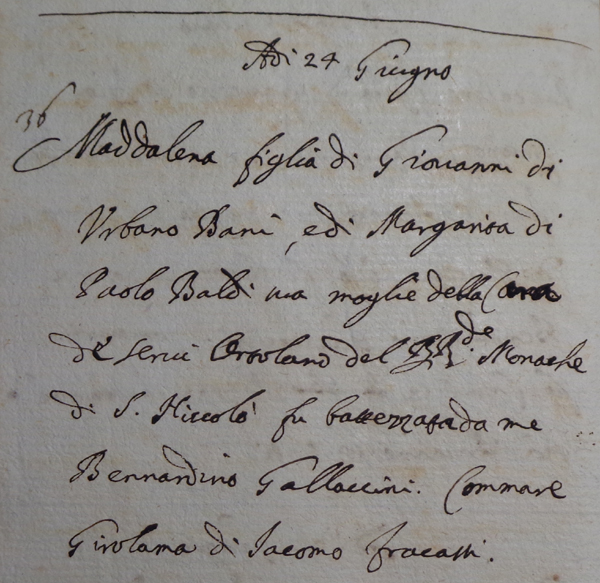 Adi 24 Giugno
36
Maddalena figlia di Giovanni di
Urbano Bani, e di Margarita di
Paolo Baldi sua moglie della Cura
de Servi Ortolano del RR.de Monache
di S. Niccolò fu battezzata da me
Bernardino Gallaccini. Commare
Girolama di Iacomo fracassi.